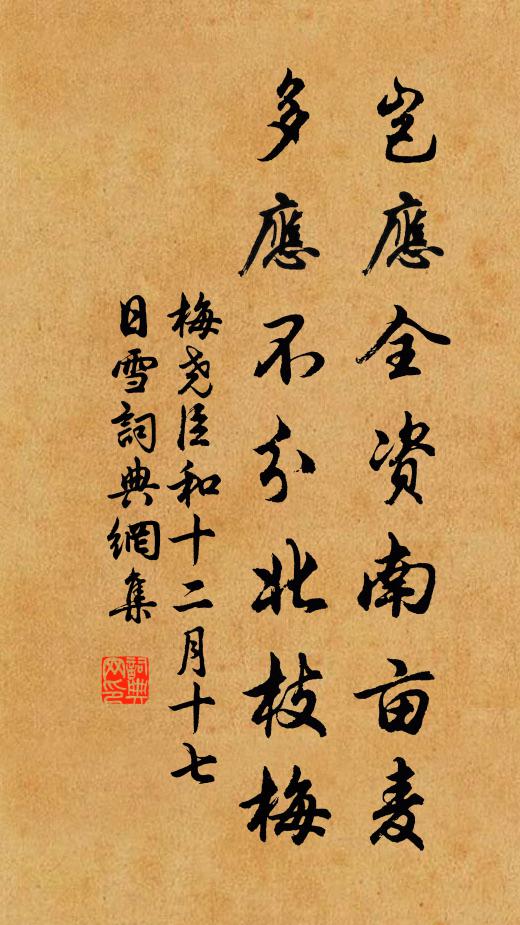 岂應全资南亩麦
多應不分北枝梅
梅尧臣和十二月十七
日雪詞典網集
詞典
网印